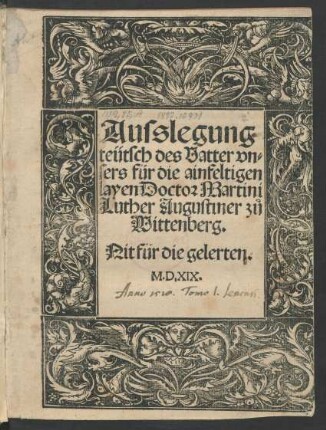 Auſslegung
teütsch des Vatter vn⸗
sers für die ainfeltigen
layen Doctor Martini
Luther Augustiner zů
Wittenberg.
Nit für die gelerten.
M.D.XIX.
Anno 1520. Tomo 1.